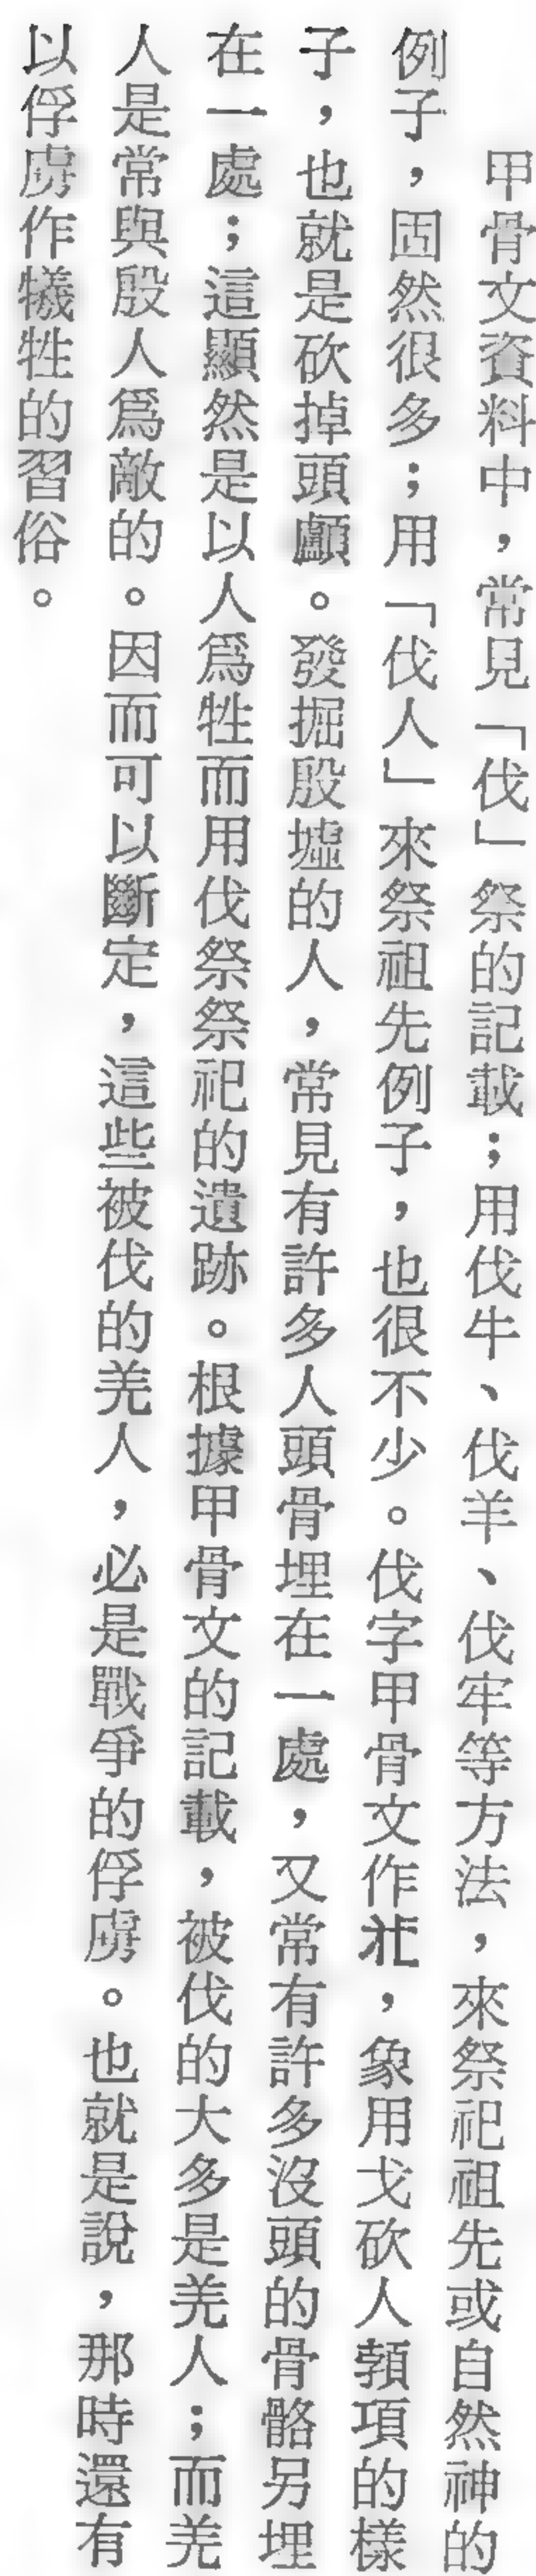 甲骨文資料中，常見「伐」祭的記載；用伐牛、伐羊、伐牢等方法，來祭祀祖先或自然神的
例子，固然很多；用「伐人」來祭祖先例子，也很不少。伐字甲骨文作，象用戈砍人頸項的樣
子，也就是砍掉頭顱。發掘殷墟的人，常見有許多人頭骨埋在一處，又常有許多沒頭的骨骼另埋
在一處；這顯然是以人爲牲而用伐祭祭祀的遺跡。根據甲骨文的記載，被伐的大多是羌人；而羌
人是常與殷人爲敵的。因而可以斷定，這些被伐的羌人，必是戰爭的俘虜。也就是說，那時還有
以俘虜作犧牲的習俗。